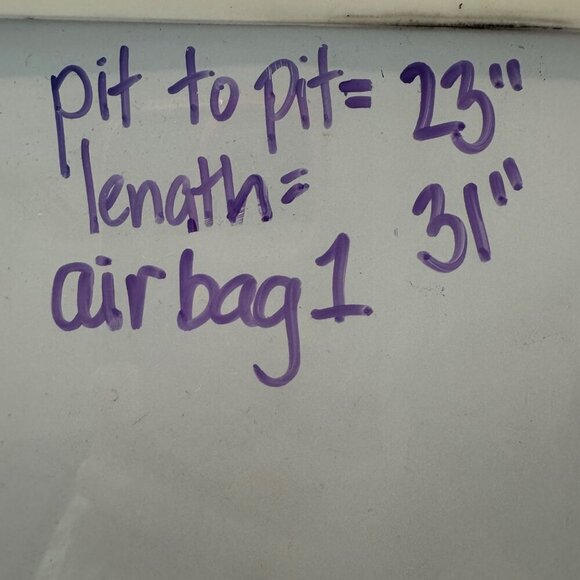 pit to pit= 23"
length= 31"
airbag1